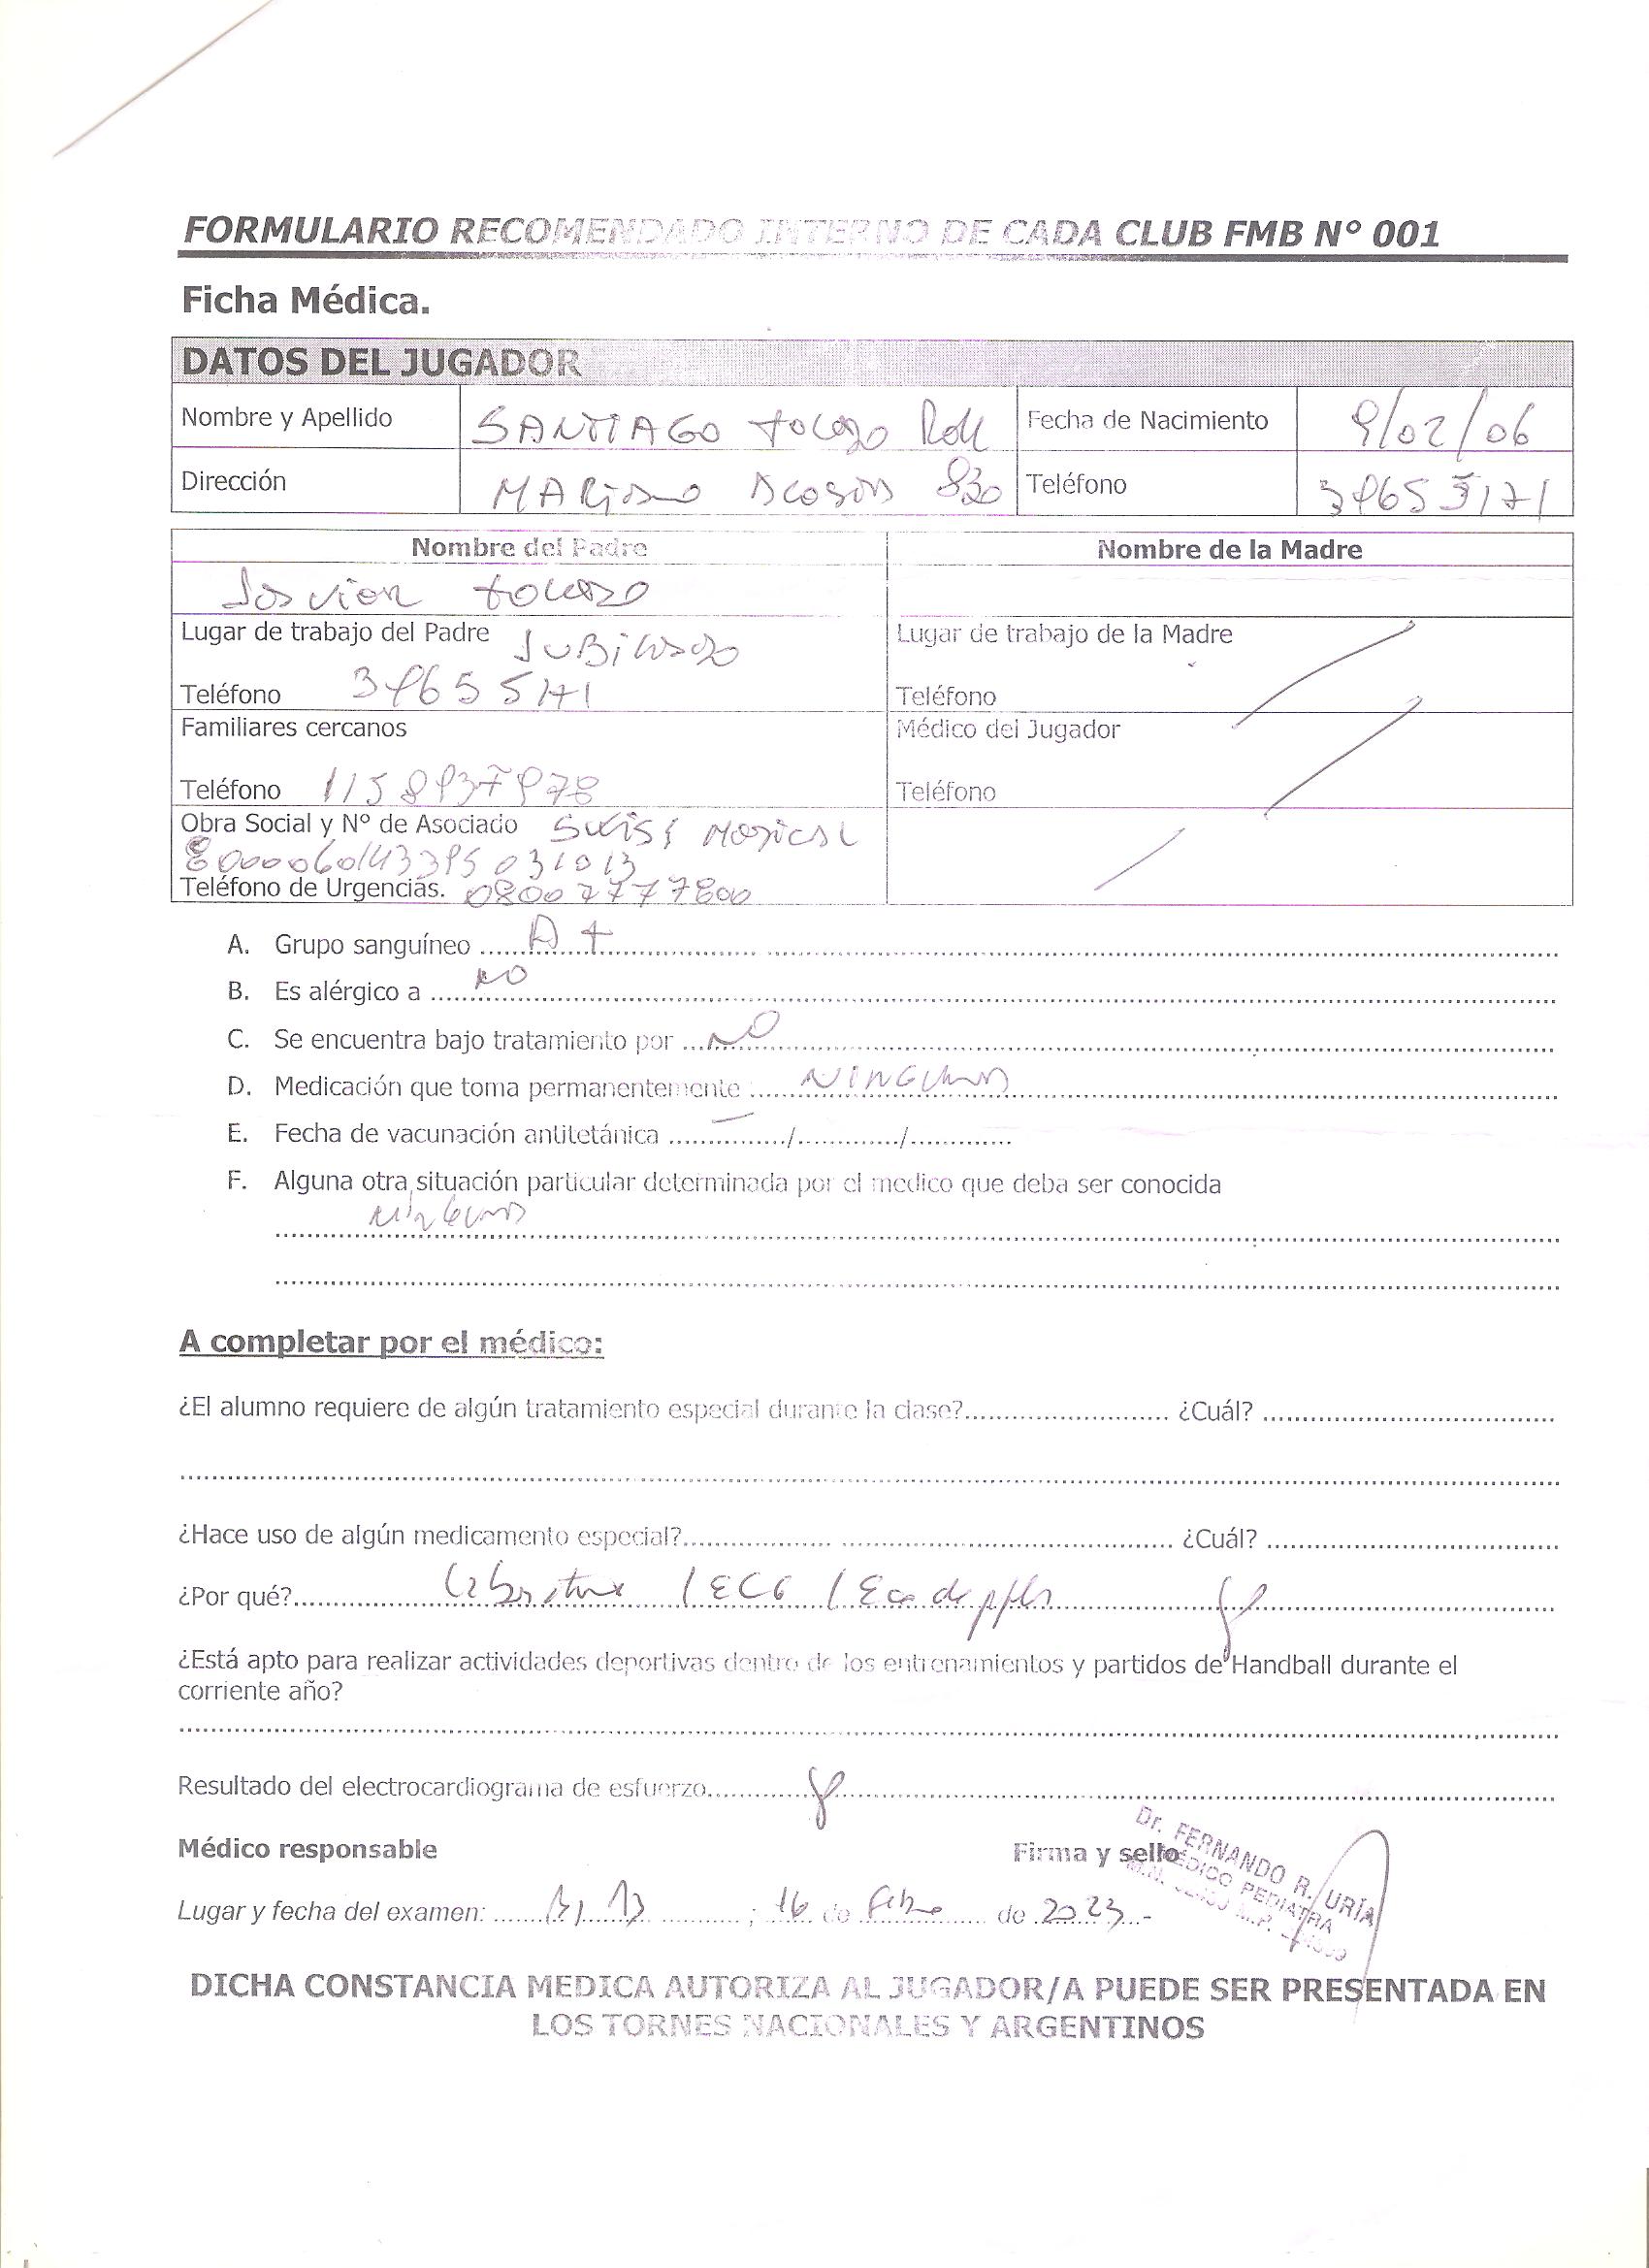 FORMULARIO RECOMENDADO INTERNO DE CADA CLUB FMB N° 001
Ficha Médica.
DATOS DEL JUGADOR
Nombre y Apellido SANTIAGO Fecha de Nacimiento 9/02/06
Dirección MARIANO ACOSTA 830 Teléfono
Nombre del Padre Nombre de la Madre
Javier
Lugar de trabajo del Padre JUBILADO Lugar de trabajo de la Madre
Teléfono Teléfono
Familiares cercanos Médico del Jugador
Teléfono Teléfono
Obra Social y N° de Asociado SWISS MEDICAL
Teléfono de Urgencias. 08007777800
A. Grupo sanguíneo A +
B. Es alérgico a NO
C. Se encuentra bajo tratamiento por NO
D. Medicación que toma permanentemente : NINGUNA
E. Fecha de vacunación antitetánica ....../....../......
F. Alguna otra situación particular determinada por el medico que deba ser conocida
NINGUNA
A completar por el médico:
¿El alumno requiere de algún tratamiento especial durante la clase? ¿Cuál?
¿Hace uso de algún medicamento especial? ¿Cuál?
¿Por qué? / ECG /
¿Está apto para realizar actividades deportivas dentro de los entrenamientos y partidos de Handball durante el
corriente año?
Resultado del electrocardiograma de esfuerzo
Médico responsable Firma y sello
Dr. FERNANDO R. URÍA
MÉDICO PEDIATRA
Lugar y fecha del examen: ; 16 de de 2023.-
DICHA CONSTANCIA MEDICA AUTORIZA AL JUGADOR/A PUEDE SER PRESENTADA EN
LOS TORNES NACIONALES Y ARGENTINOS